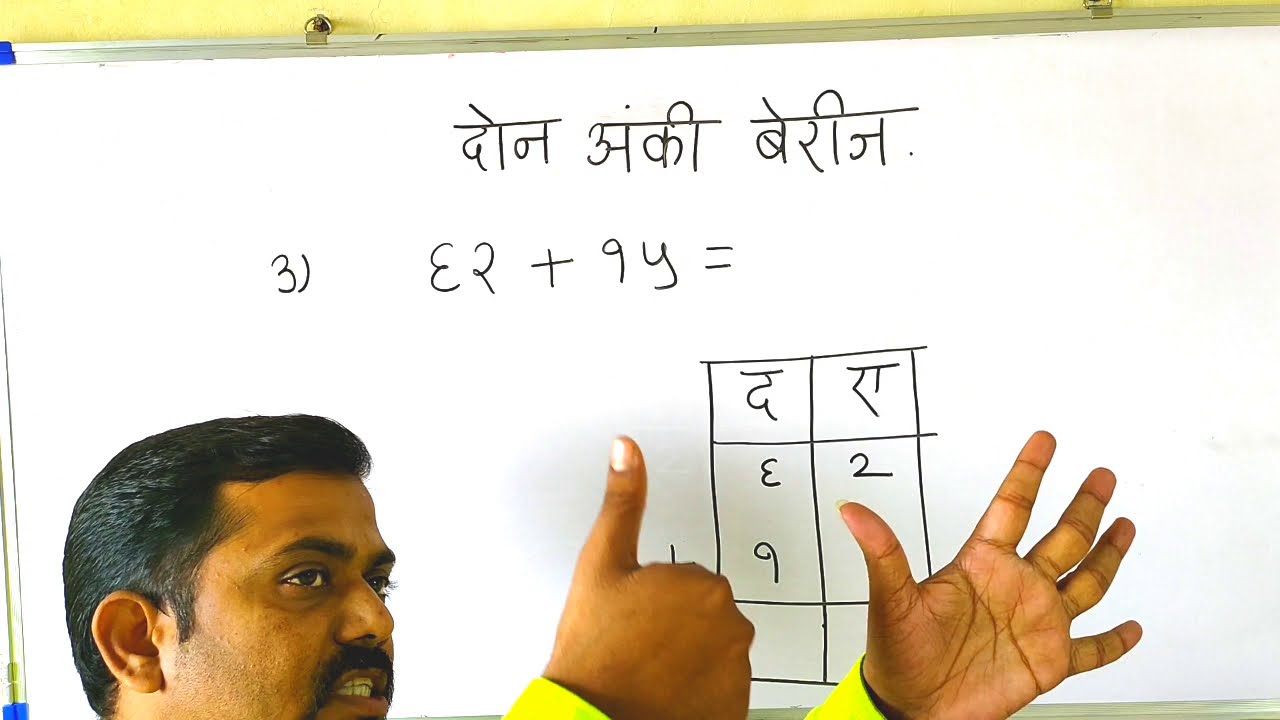 दोन अंकी बेरीज.
3) ६२ + १५ =
द ए
६ २
+ १